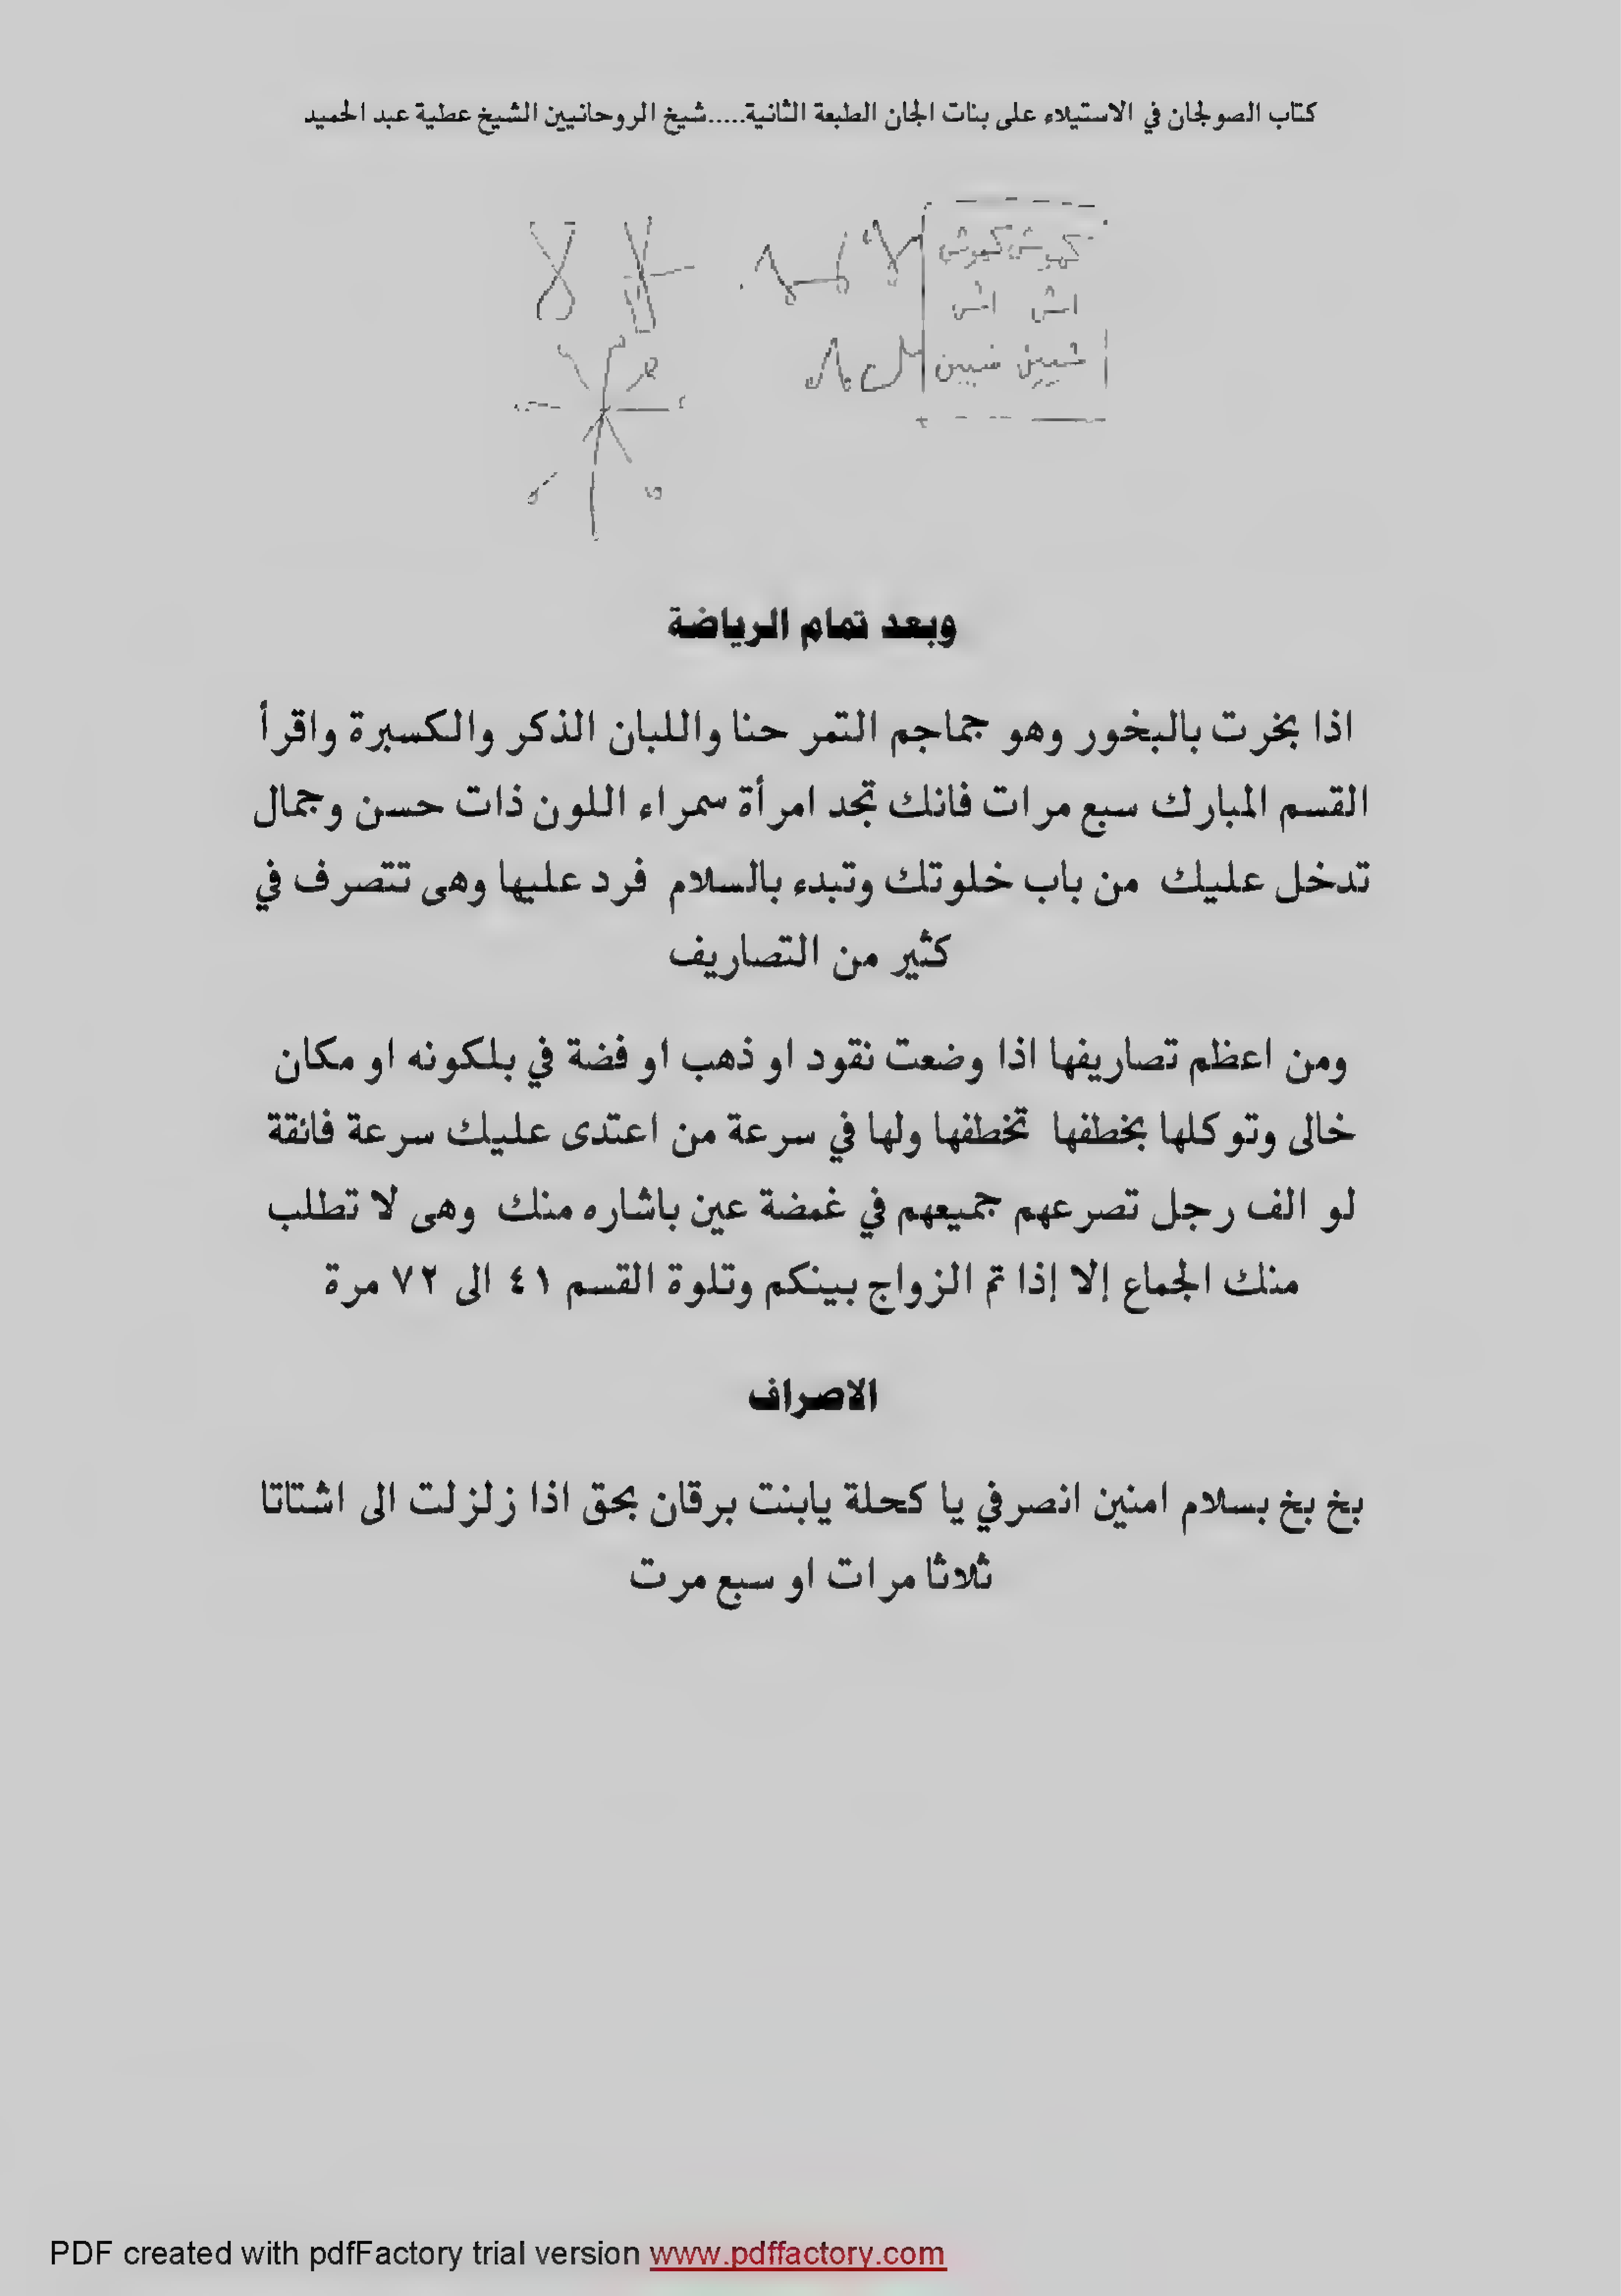 كتاب الصولجان في الاستيلاء على بنات الجان الطبعة الثانية.....شيخ الروحانيين الشيخ عطية عبد الحميد
كموش كموش
اش اش
وبعد تمام الرياضة
اذا بخرت بالبخور وهو جماجم التمر حنا واللبان الذكر والكسبرة واقرأ
القسم المبارك سبع مرات فانك تجد امرأة سمراء اللون ذات حسن وجمال
تدخل عليك من باب خلوتك وتبدء بالسلام فرد عليها وهى تتصرف في
كثير من التصاريف
ومن اعظم تصاريفها اذا وضعت نقود او ذهب او فضة في بلكونه او مكان
خالى وتوكلها بخطفها تخطفها ولها في سرعة من اعتدى عليك سرعة فائقة
لو الف رجل تصرعهم جميعهم في غمضة عين باشاره منك وهى لا تطلب
منك الجماع إلا إذا تم الزواج بينكم وتلوة القسم ٤١ الى ٧٢ مرة
الاصراف
بخ بخ بسلام امنين انصرفي يا كحلة يابنت برقان بحق اذا زلزلت الى اشتاتا
ثلاثا مرات او سبع مرت
PDF created with pdfFactory trial version www.pdffactory.com